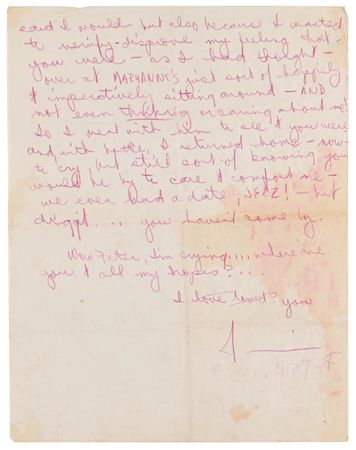 said I would but also because I wanted
to verify-disprove my feeling that
you well - as I had thought -
over at MARYANNS's just sort of happily
& imperatively sitting around - AND
not even thinking or caring about me.
So I went with him to see if you were
and with hottie, I returned home - now
to cry but still sort of knowing you
would be by to care & comfort me -
we even had a date, JEEZ! - but
dig it.... you haven't come by.
Wow Peter, I'm crying.... where are
you & all my hopes?....
I love loved? you